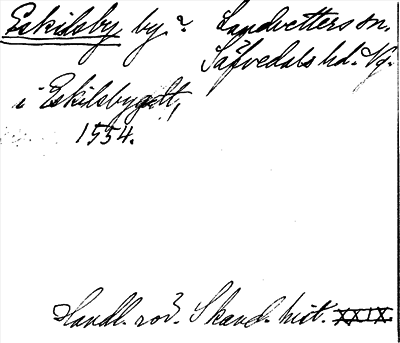 Eskilsby by? Landvetters sn.
Säfvedals hd. Vg.
i Eskilsbygatt,
1554.
Handl. rör. Skand. hist. XXIX.